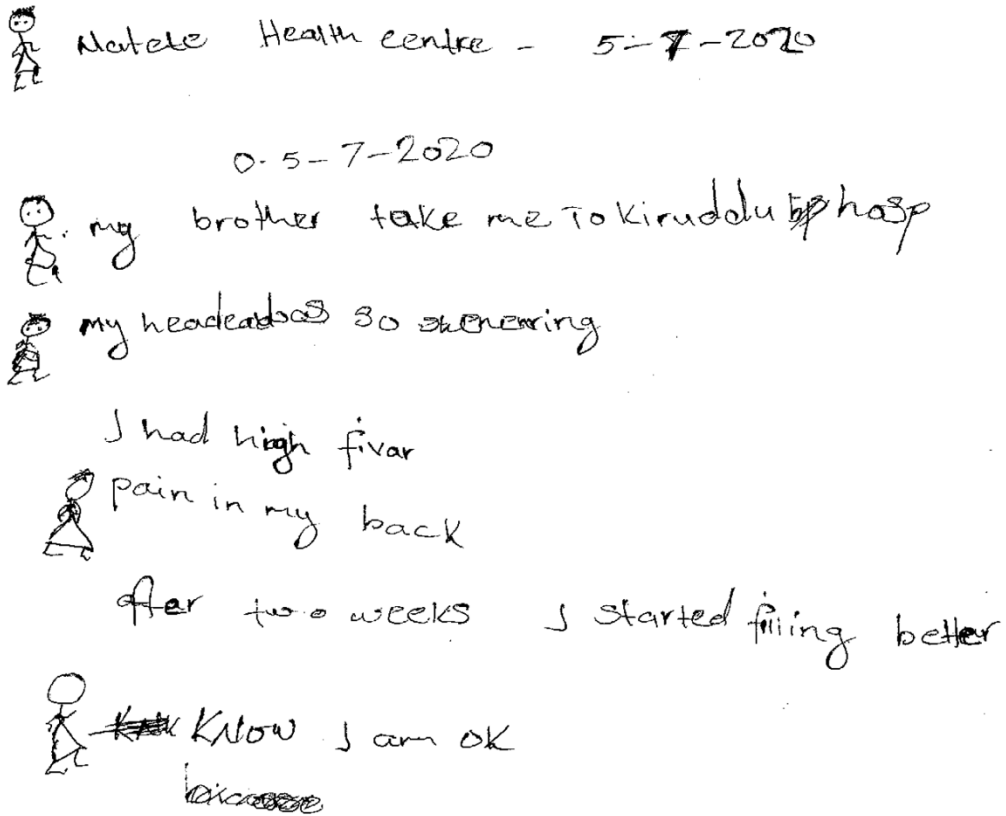 Natete Health centre - 5-7-2020
0.5-7-2020
my brother take me To Kiruddu hosp
my so
I had high fivar
pain in my back
after two weeks I started filing better
KNOW I am OK